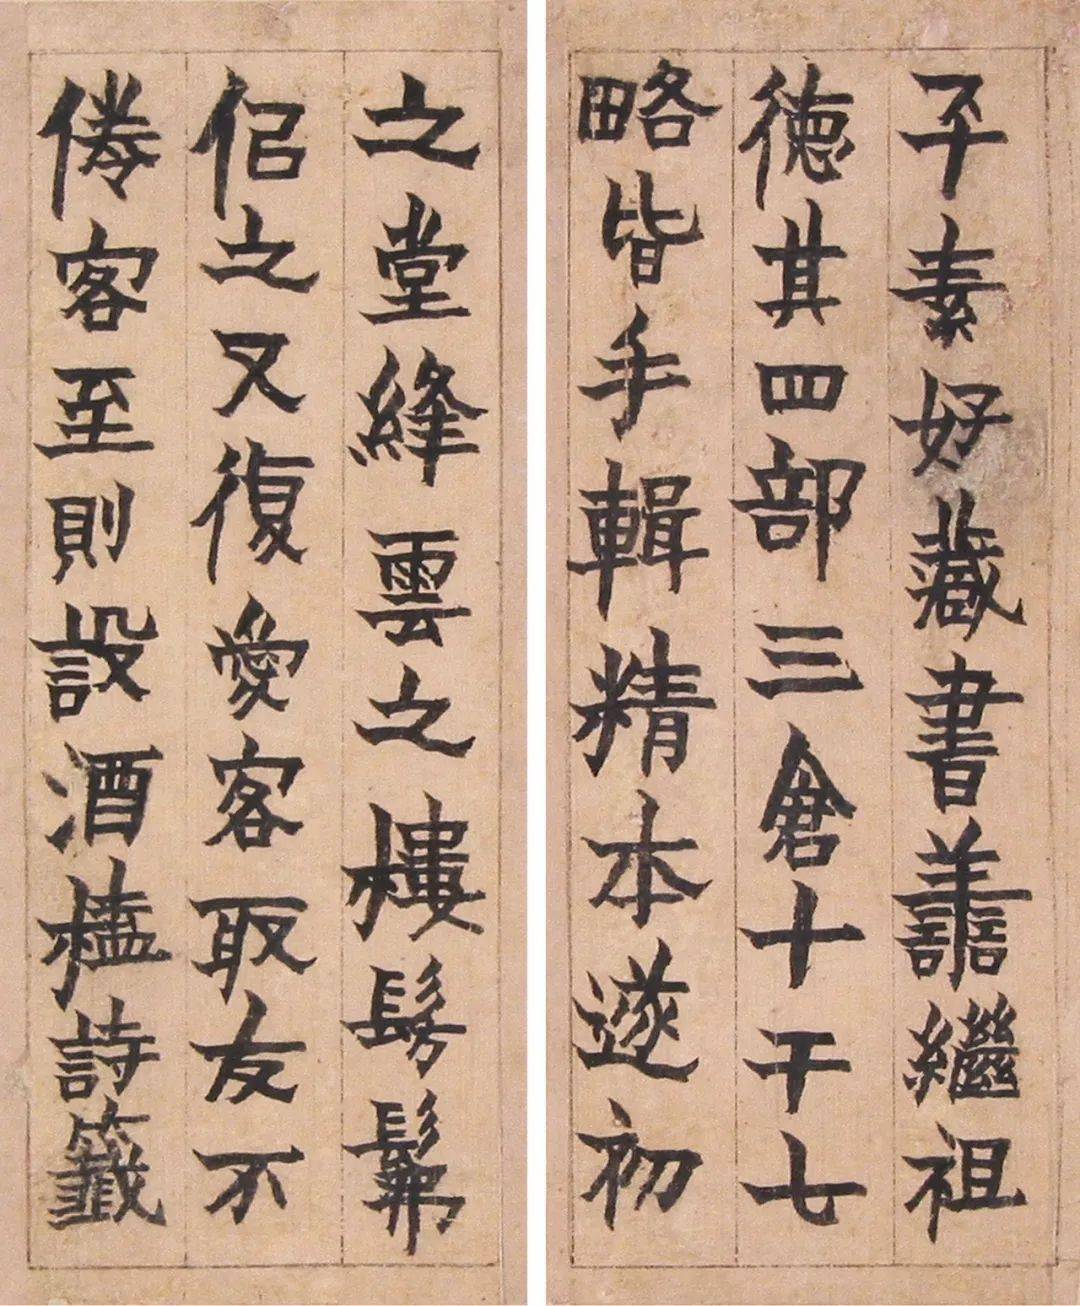 平素好藏書譱繼祖
徳其四部三倉十干七
略皆手輯精本遂初
之堂絳雲之樓髣髴
佀之又復愛客取友不
倦客至則設酒榼詩籤